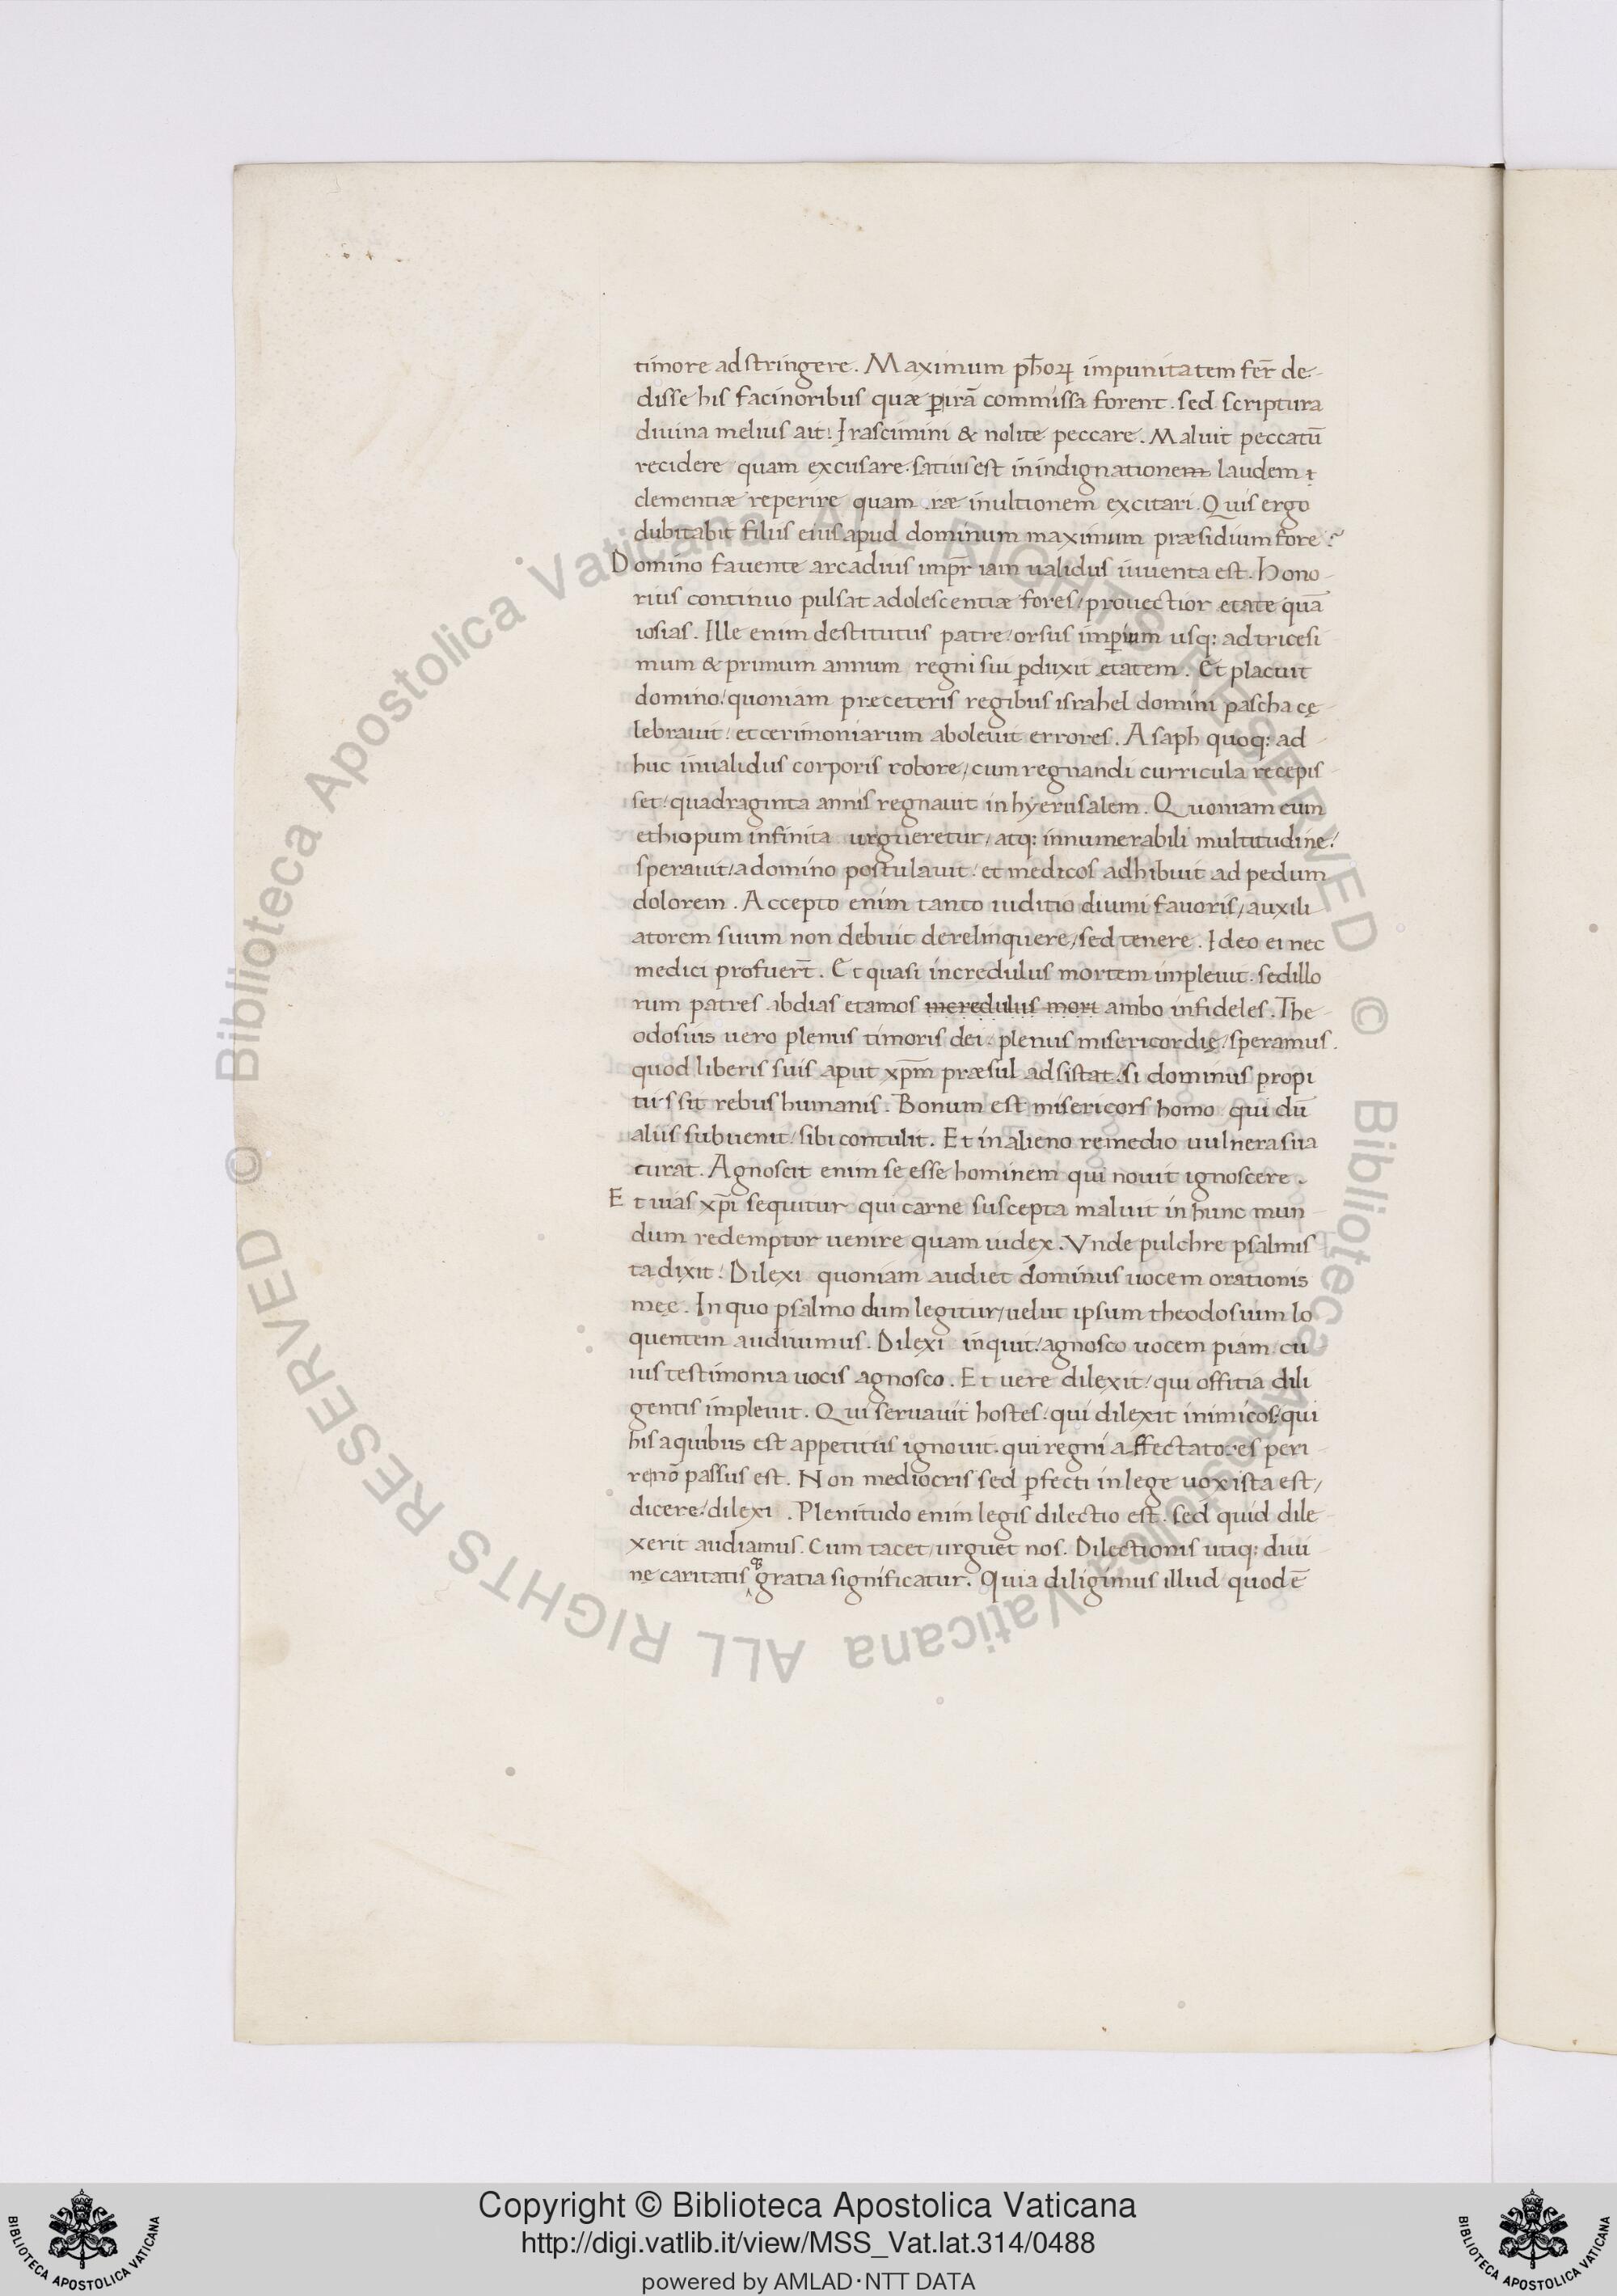 timore adstringere. Maximum ph̅oꝝ impunitatem fer̅ de-
disse his facinoribus quæ ꝑ irā commissa forent. sed scriptura
diuina melius ait: Irascimini & nolite peccare. Maluit peccatū
recidere quam excusare. satius est in indignationem laudem
clementiæ reperire quam iræ inultionem excitari. Quis ergo
dubitabit filiis eius apud dominum maximum præsidium fore?
Domino fauente arcadius imp̅r iam ualidus iuuenta est. Hono-
rius continuo pulsat adolescentiæ fores/ prouectior etate quā
iosias. Ille enim destitutus patre/ orsus imperium usq: ad tricesi
mum & primum annum regni sui ꝑduxit etatem. Et placuit
domino: quoniam pre ceteris regibus israhel domini pascha cę
lebrauit: et cerimoniarum aboleuit errores. Asaph quoq: ad
huc inualidus corporis robore/ cum regnandi curricula recepis
set/ quadraginta annis regnauit in hyerusalem. Quoniam eum
ethiopum infinita urgueretur/ atq: innumerabili multitudine:
sperauit/ a domino postulauit: et medicos adhibuit ad pedum
dolorem. Accepto enim tanto iuditio diuini fauoris/ auxili
atorem suum non debuit derelinquere/ sed tenere. Ideo ei nec
medici profuer̅t. Et quasi incredulus mortem impleuit. sed illo
rum patres abdias et amos incredulus mort ambo infideles. The
odosius uero plenus timoris dei. plenus misericordię/ speramus.
quod liberis suis aput xp̅m præsul adsistat: si dominus propi
tius sit rebus humanis. Bonum est misericors homo qui dū
aliis subuenit/ sibi contulit. Et in alieno remedio uulnera sua
curat. Agnoscit enim se esse hominem qui nouit ignoscere.
Et uias xp̅i sequitur qui carne suscepta maluit in hunc mun
dum redemptor uenire quam iudex. Vnde pulchre psalmis
ta dixit: Dilexi quoniam audiet dominus uocem orationis
meę. In quo psalmo dum legitur/ uelut ipsum theodosium lo
quentem audiuimus. Dilexi inquit: agnosco uocem piam/ cu
ius testimonia uocis agnosco. Et uere dilexit/ qui offitia dili
gentis impleuit. Qui seruauit hostes: qui dilexit inimicos: qui
his a quibus est appetitus ignouit. qui regni affectatores peri
re nō passus est. Non mediocris sed ꝑfecti in lege uox ista est/
dicere: dilexi. Plenitudo enim legis dilectio est. sed quid dile
xerit audiamus. Cum tacet/ urguet nos. Dilectionis utiq: diui
nę caritatis gratia significatur. Quia diligimus illud quod ē
Copyright © Biblioteca Apostolica Vaticana
http://digi.vatlib.it/view/MSS_Vat.lat.314/0488
powered by AMLAD·NTT DATA
BIBLIOTECA APOSTOLICA VATICANA
BIBLIOTECA APOSTOLICA VATICANA
© Biblioteca Apostolica Vaticana ALL RIGHTS RESERVED © Biblioteca Apostolica Vaticana ALL RIGHTS RESERVED